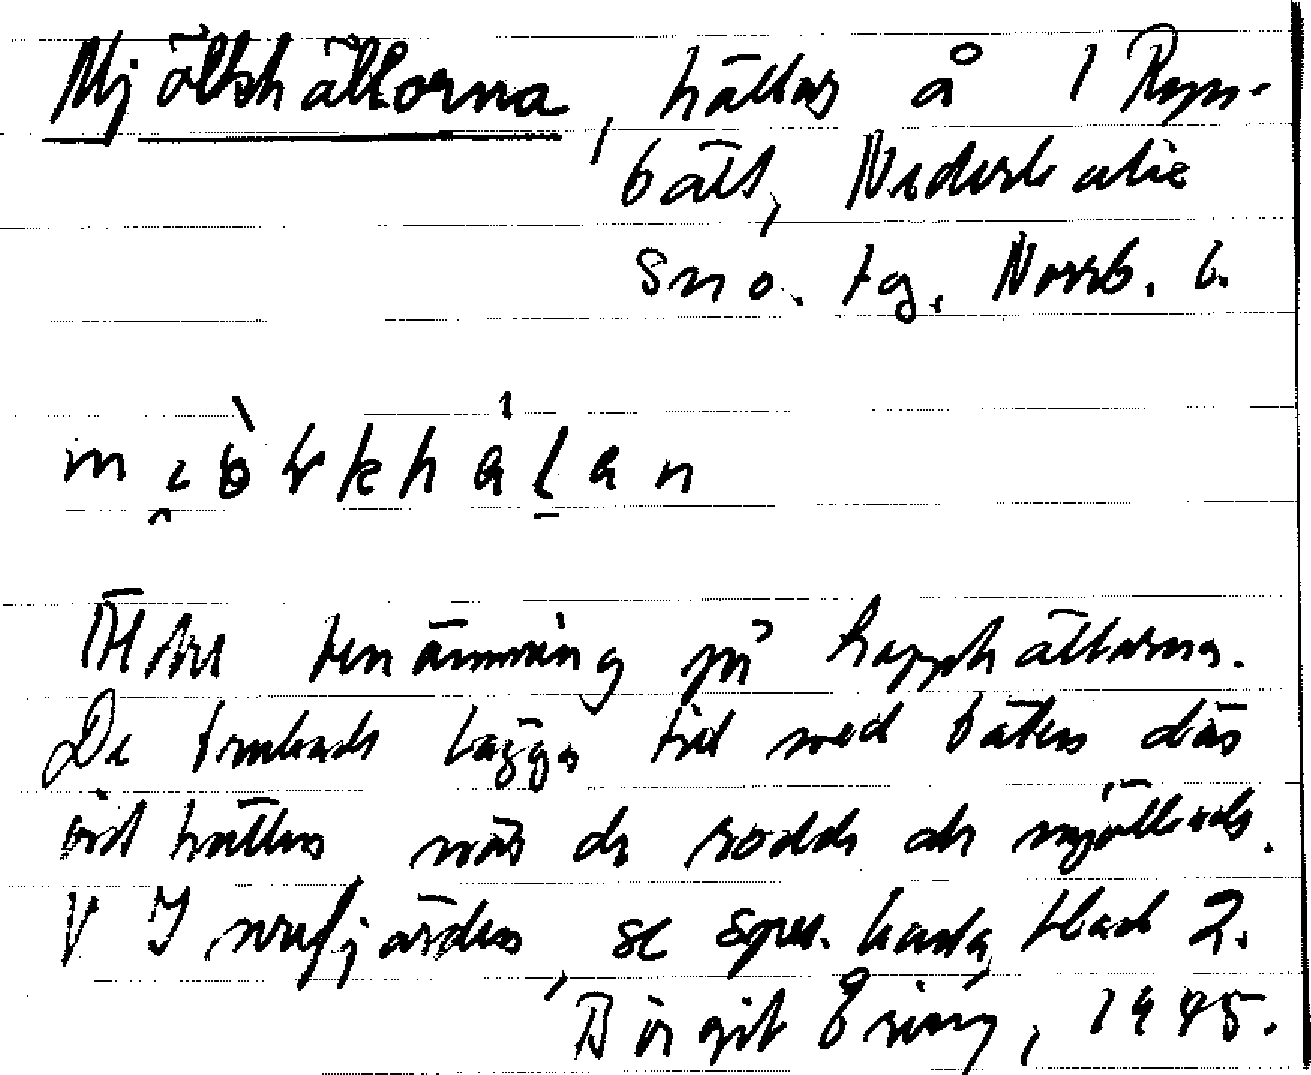 Mjölkhällorna, hällar å 1 Ryss-
bält, Nederkalix
sn o. tg. Norrb. l.
mi̯ölkhälan
Äldre benämning på Kapphällarna.
De brukade lägga till med båten där
vid hällen när de rodde de mjölkade.
V Innerfjärden, se spec. karta, blad 2.
Birgit Ering, 1945.